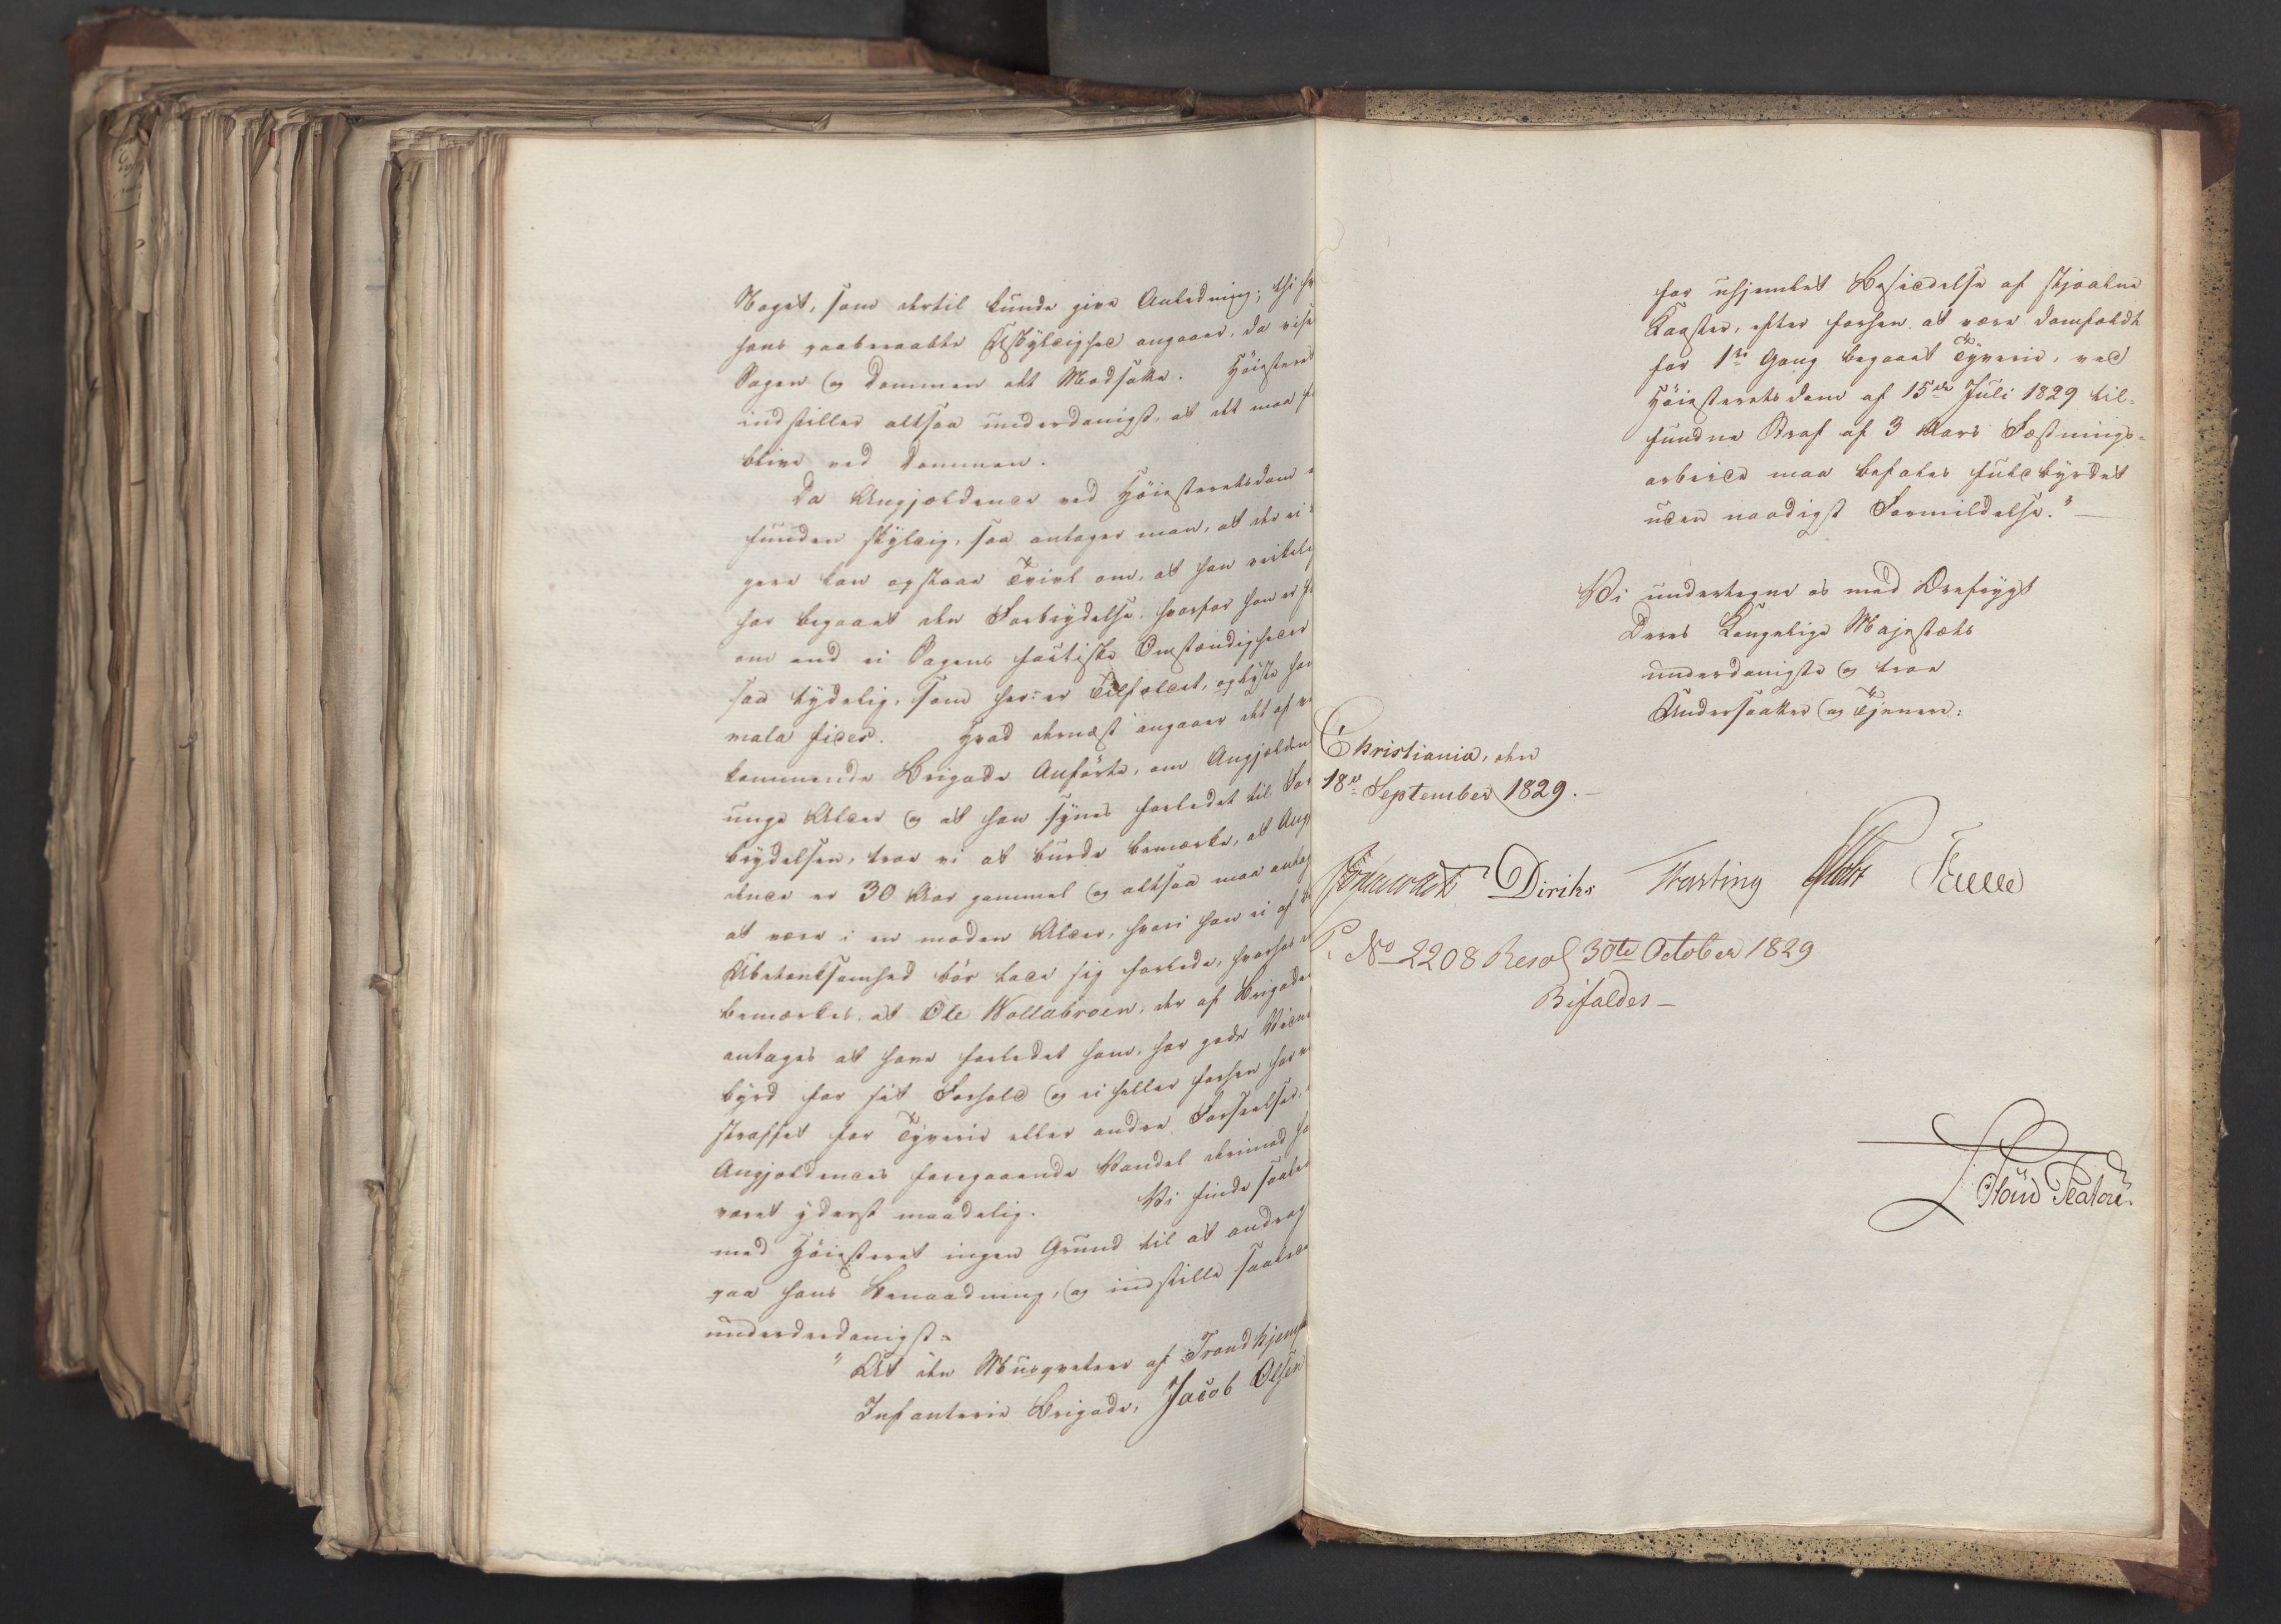 Noget, som dertil kunde give Anledning; thi h
hans paaberaabte Uskyldighed angaaer, da vise
Sagen og Dommen det Modsatte. Höiesteret
indstiller altsaa underdanigst, at det maa f
blive ved Dommen.
Da Angjældende ved Höiesteretsdom e
funden skyldig, saa antager man, at der ei
gere kan opstaae Tvivl om, at han virkelig
har begaaet den Forbrydelse, hvorfor han er
om end ei Sagens factiske Omstændigheder
saa tydelig, som her er Tilfældet, oplyste han
mala fides. Hvad dernæst angaaer det af v
kommende Brigade Anförte, om Angjælden
unge Alder og at han synes forledet til For
brydelsen, troe vi at burde bemærke, at Ang
dende er 30 Aar gammel og altsaa maa antag
at være i en moden Alder, hvori han ei af
Ubetænksomhed bör lade sig forlede, hvorhos
bemærkes, at Ole Wollabroen, der af Brigade
antages at have forledet ham, har gode Vidne
byrd for sit Forhold og ei heller forhen har v
straffet for Tyverie eller andre Forseelser,
Angjældendes foregaaende Vandel derimod ha
været yderst maadelig. Vi finde saale
med Höiesteret ingen Grund til at andrag
paa hans Benaadning, og indstille saaled
underderdanigst:
"At den Musqveteer af Trondhjemsk
Infanterie Brigade, Jacob Olsen
for uhjemlet Besiddelse af stjaalne
Koster, efter forhen at være domfældt
for 1ste Gang begaaet Tyverie, ved
Höiesteretsdom af 15de Juli 1829 til-
fundne Straf af 3 Aars Fæstnings-
arbeide maa befales fuldbyrdet
uden naadigst Formildelse." —
Vi undertegne os med Ærefrygt
Deres Kongelige Majestæts
underdanigste og troe
Undersaatter og Tjenere:
Christiania, den
18de September 1829. —
Diriks
P. No 2208 Resol 30te October 1829
Bifaldes —